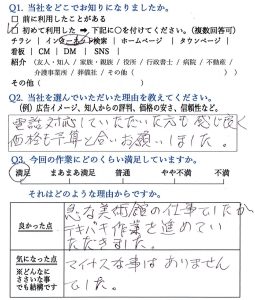 Q1. 当社をどこでお知りになりましたか。
□ 前に利用したことがある
☑ 初めて利用した ➡ 下記に○を付けてください。(複数回答可)
チラシ | インターネット検索 | ホームページ | タウンページ |
看板 | CM | DM | SNS |
紹介 (友人・知人 / 家族・親族 / 役所 / 行政書士 / 病院 / 不動産 /
介護事業所 / 葬儀社 / その他) その他(
Q2. 当社を選んでいただいた理由を教えてください。
(例) 広告イメージ、知人からの評判、価格の安さ、信頼性など。
電話対応していただいた方も感じ良く
価格も予算と合いお願いしました。
Q3. 今回の作業にどのくらい満足していますか。
満足 まあまあ満足 普通 やや不満 不満
それはどのような理由からですか。
良かった点
急な美術館の仕事でしたが
テキパキ作業を進めてい
ただきました。
気になった点
※どんなに
ささいな事
でも結構です
マイナスな事はありません
でした。